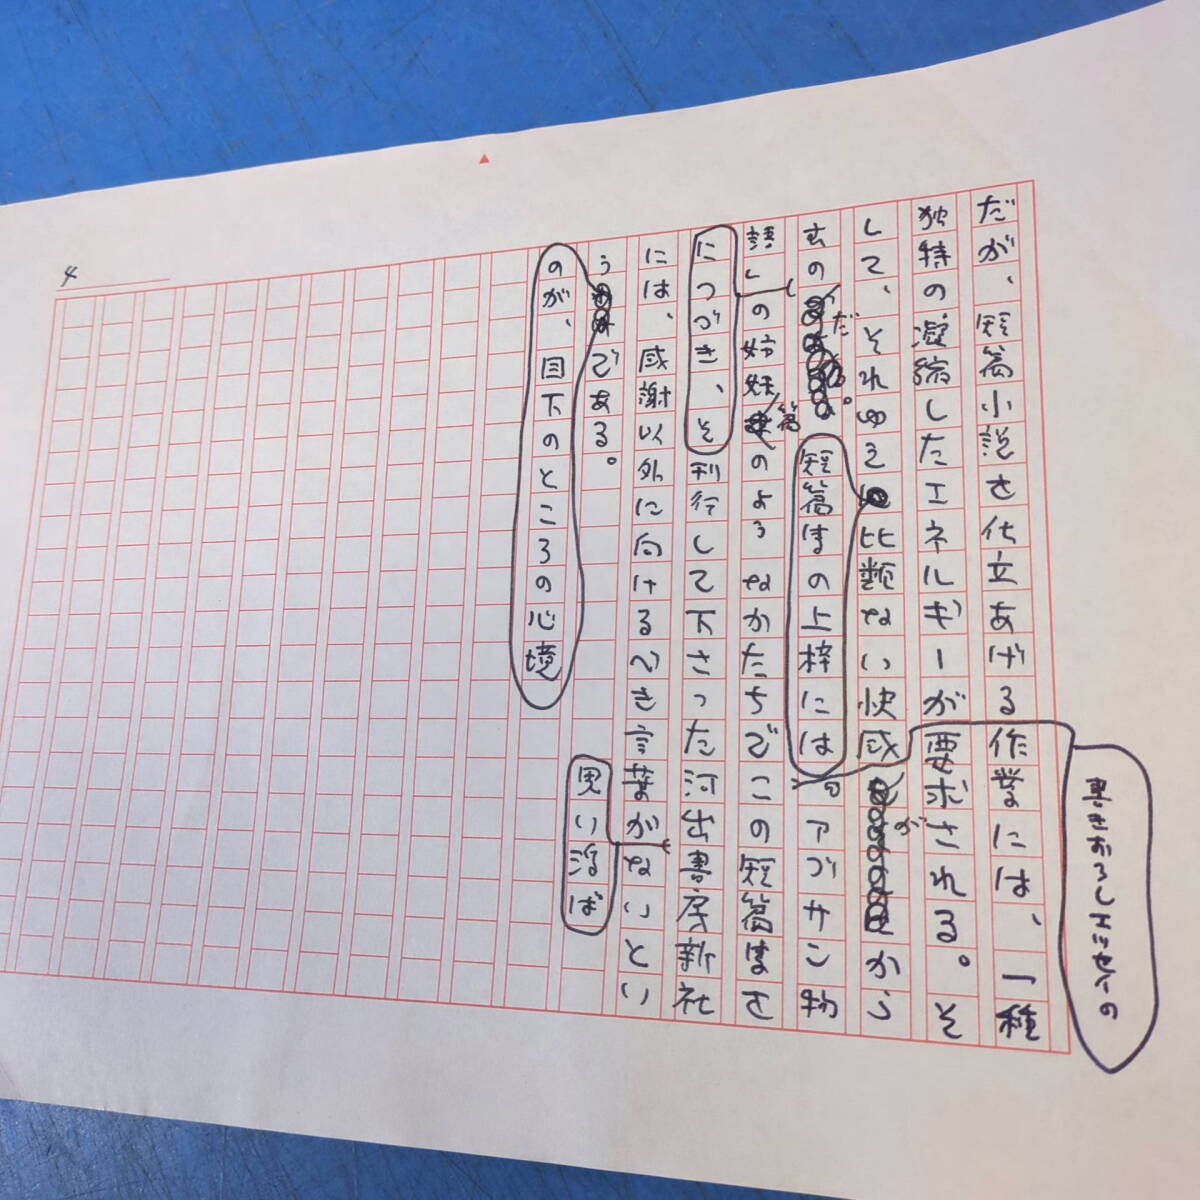 書きおろしエッセイの
だが、短篇小説を仕立あげる作業には、一種
独特の凝縮したエネルギーが要求される。そ
して、それゆえ比類ない快感がから
むのだ。短篇集の上梓には『アブサン物
語』の姉妹篇のようなかたちでこの短篇集を
につづき、そ刊行して下さった河出書房新社
には、感謝以外に向けるべき言葉がないとい
うである。
思い浮ば
のが、目下のところの心境
4